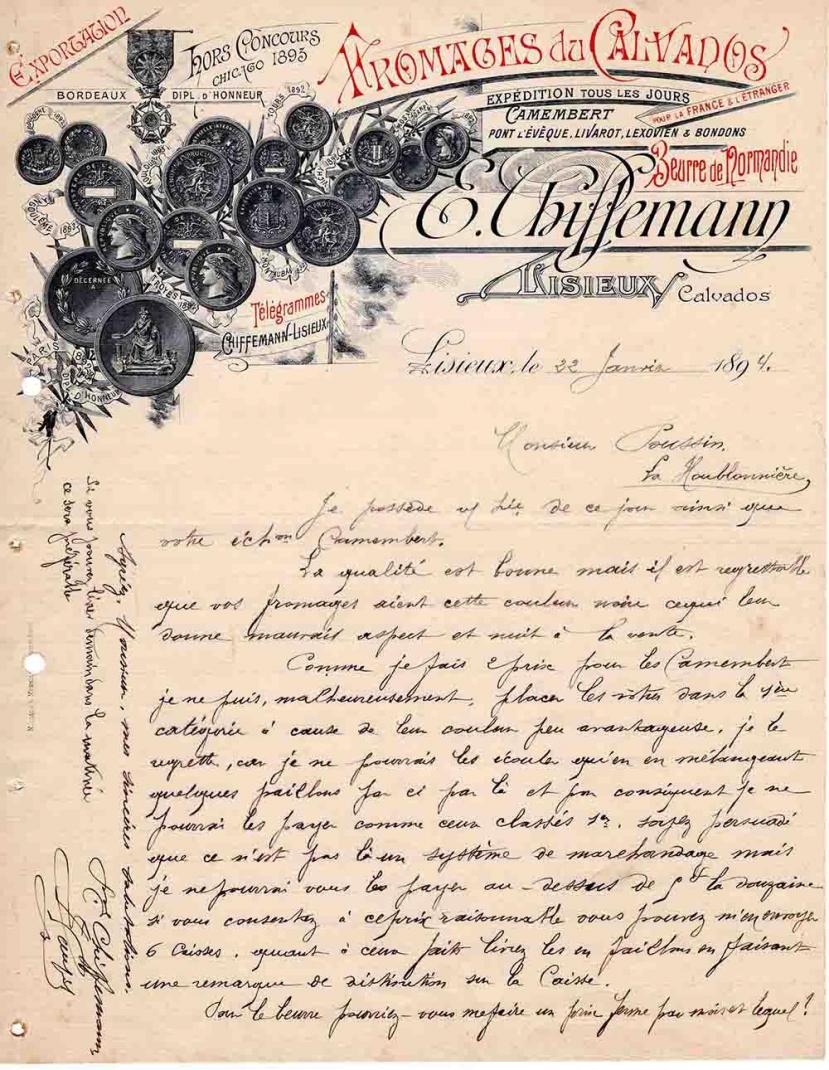 EXPORTATION
HORS CONCOURS
CHICAGO 1893
BORDEAUX DIPL. D'HONNEUR
FROMAGES du CALVADOS
EXPÉDITION TOUS LES JOURS
POUR LA FRANCE & L'ÉTRANGER
CAMEMBERT
PONT L'ÉVÊQUE, LIVAROT, LEXOVIEN & BONDONS
Beurre de Normandie
E. Chiffemann
LISIEUX Calvados
TOURS 1892
MONTAUBAN
TROYES
DÉCERNÉE
A
PARIS
DIPL. D'HONNEUR
Télégrammes
CHIFFEMANN-LISIEUX
Lisieux, le 22 Janvier 1894.
Monsieur Poussin,
La Houblonnière,
Je possède de ce jour ainsi que
votre échon Camembert.
La qualité est bonne mais il est regrettable
que vos fromages aient cette couleur noire ce qui leur
donne mauvais aspect et nuit à la vente.
Comme je fais 2 prix pour les Camembert
je ne puis, malheureusement, placer les vôtres dans la 1ère
catégorie à cause de leur couleur peu avantageuse, je le
regrette, car je ne pourrais les écouler qu'en en mélangeant
quelques paillons par ci par là et par conséquent je ne
pourrai les payer comme ceux classés 1er. soyez persuadé
que ce n'est pas là un système de marchandage mais
je ne pourrai vous les payer au-dessus de 5f la douzaine
si vous consentez à ce prix raisonnable vous pouvez m'en envoyer
6 Caisses, quant à ceux faits livrez les en paillons en faisant
une remarque de distinction sur la Caisse.
Pour le beurre pourriez-vous me faire un prix ferme par mois et lequel?
Agréez, Monsieur, mes sincères salutations.
E. Chiffemann
Si vous pouvez livrer demain dans la matinée
ce sera préférable